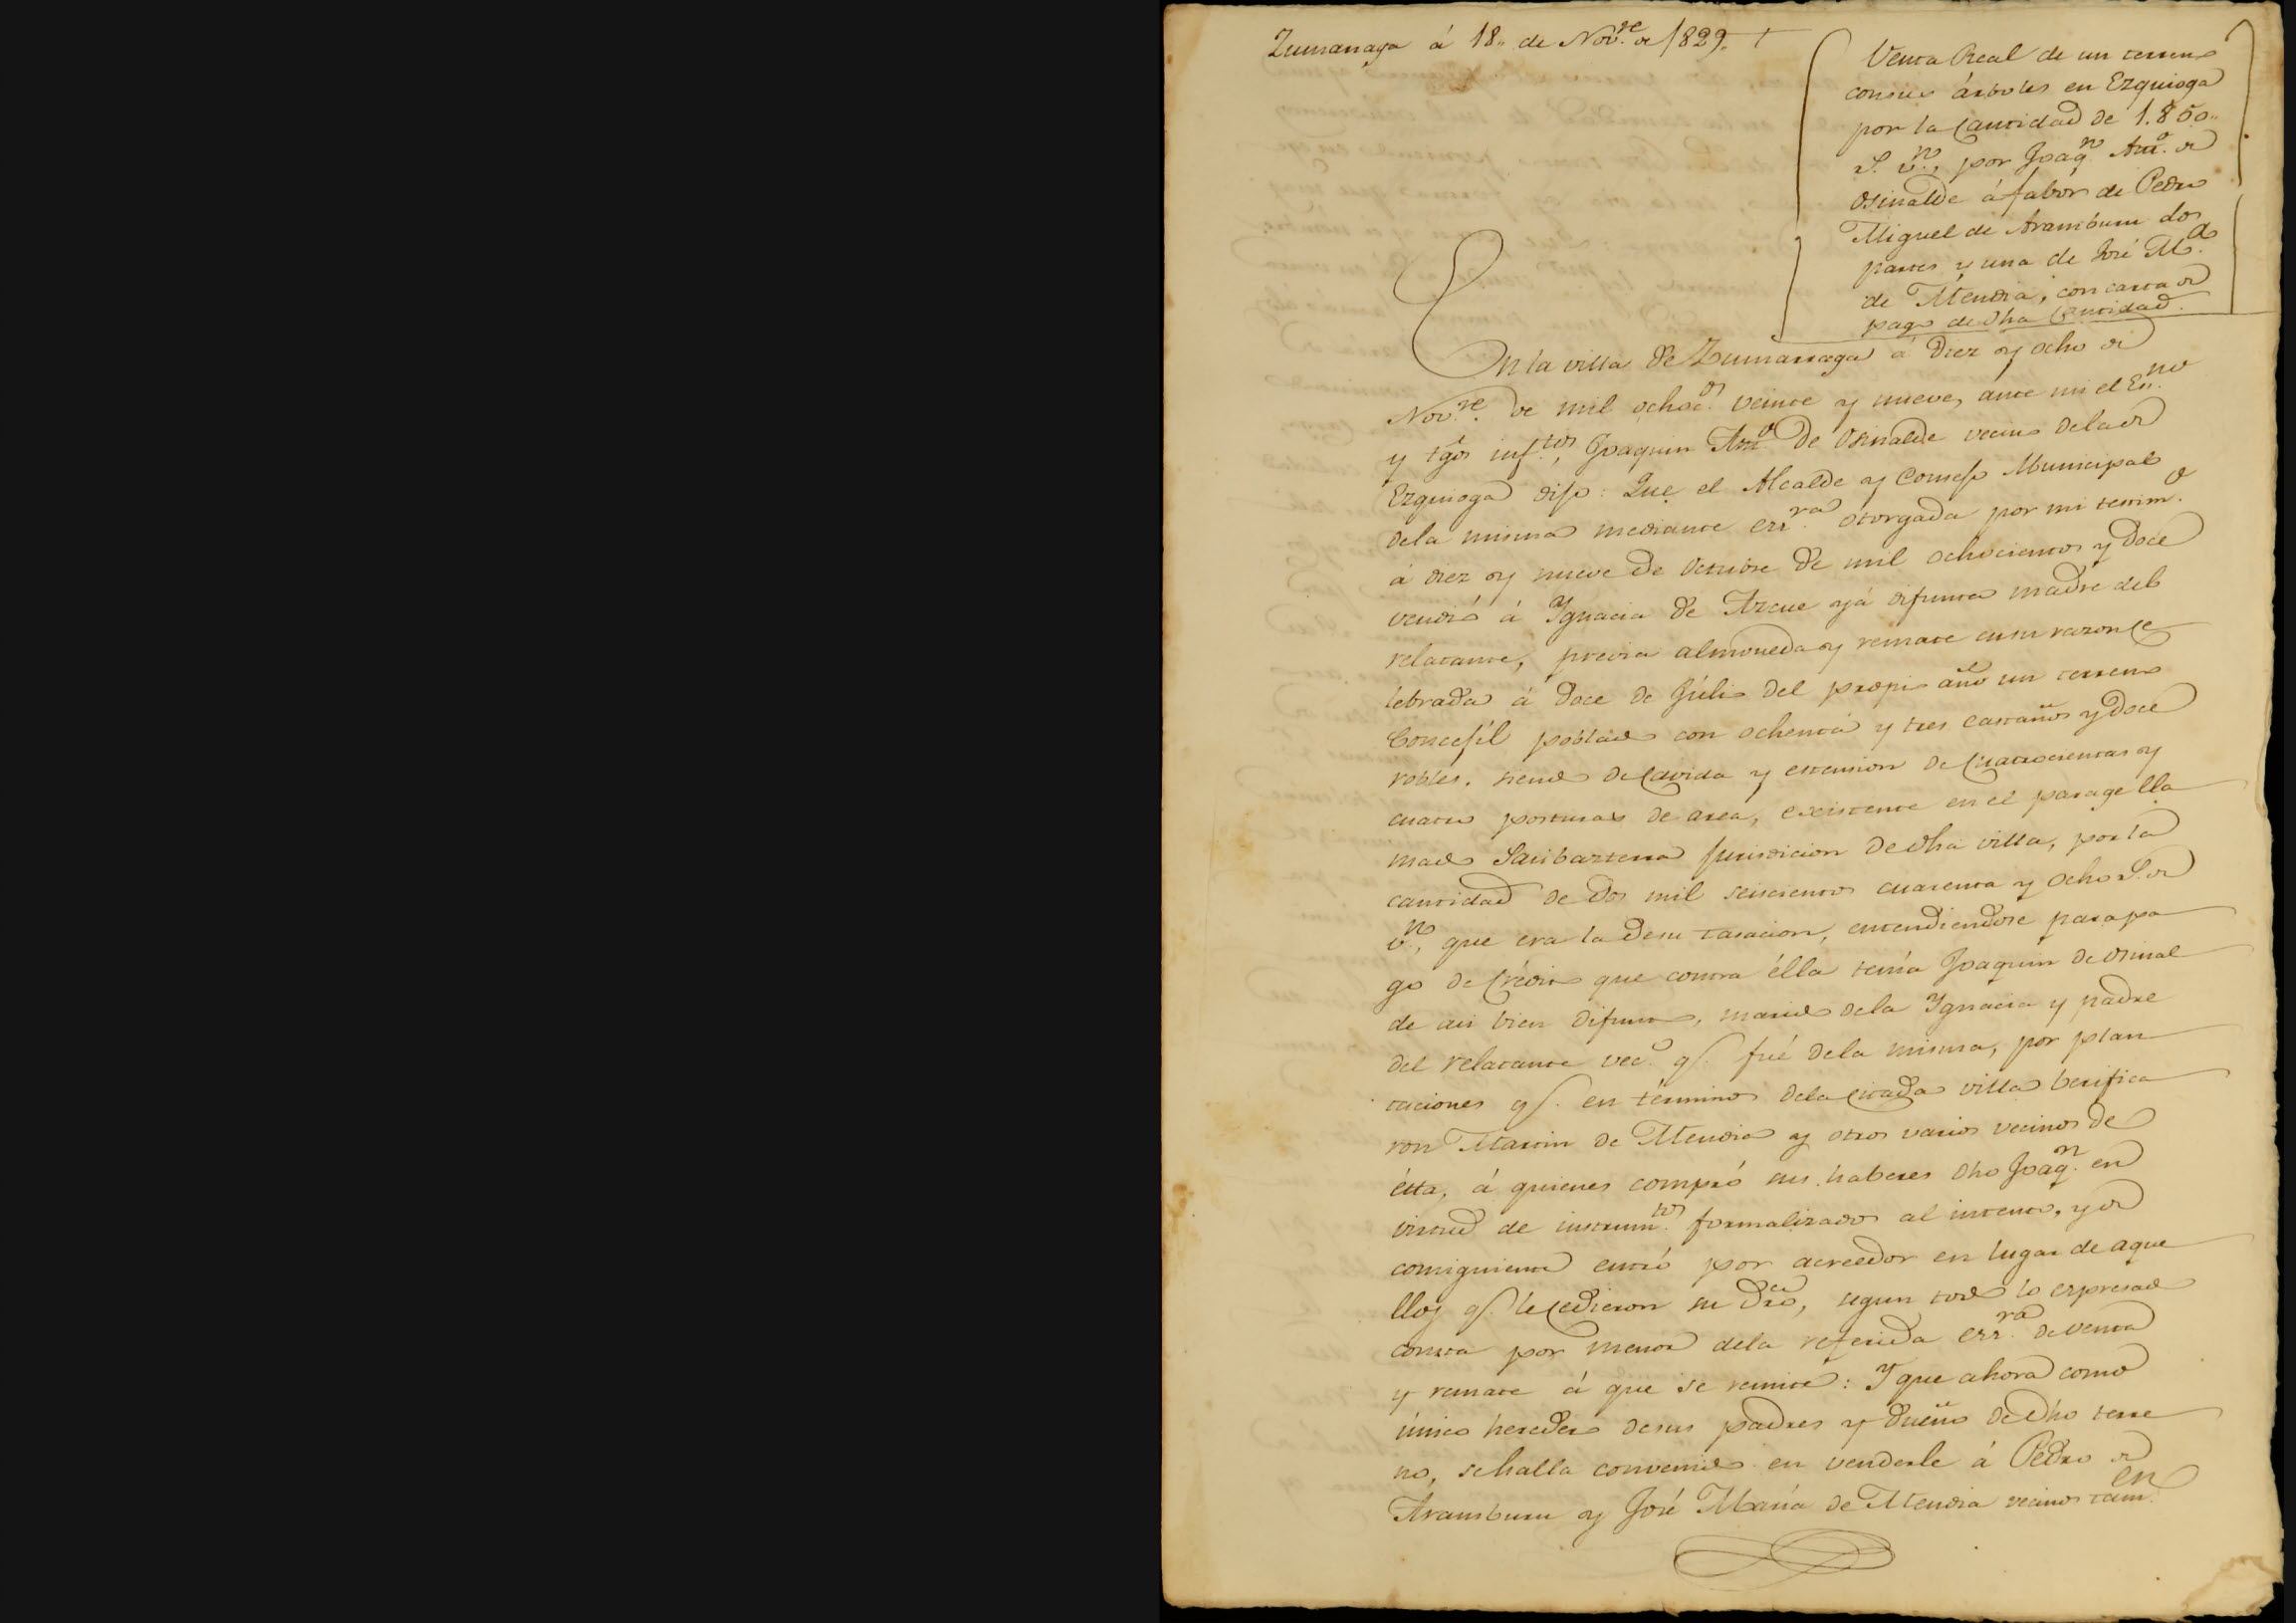 Zumarraga á 18,, de Nov.re de 1829,, +
Venta Real de un terreno
con sus árboles en Ezquioga
por la Cantidad de 1.850,,
r.s v.n, por Joaq.n Ant.o de
Osinalde á fabór de Pedro
Miguel de Aramburu dos
partes y una de José M.a
de Mendia, con carta de
pago de dha Cantidad.
En la villa de Zumarraga á diez y ocho de
Nov.re de mil ochoc.s veinte y nueve, ante mi el Es.no
y tgos inf.tos, Joaquin Ant.o de Osinalde vecino dela de
Ezquioga dijo: Que el Alcalde y Consejo Municipal
dela misma mediante esr.ra otorgada por mi testim.o
á diez y nueve de Octubre de mil ochocientos y doce
vendió á Ygnacia de Azcue yá difunta madre del
relatante, previa almoneda y remate en su razon ce
lebrada á doce de Júlio del propio año un terreno
Concejíl poblado con ochenta y tres castaños y doce
robles, siendo de Cavida y estension de Cuatrocientas y
cuatro posturas de area, existente en el parage lla
mado Saribarterra jurisdicion de dha villa, por la
cantidad de dos mil seiscientos cuarenta y ocho r.s de
v.n, que era la de su tasacion, entendiendose para pa
go de Crédito que contra élla tenía Joaquin de Osinal
de asi bien difunto, marido dela Ygnacia y padre
del relatante vec.o q.e fué dela misma, por plan
taciones q.e en términos dela Citada villa berifica
ron Martin de Mendia y otros varios vecinos de
ésta, á quienes compró sus haberes dho Joaq.n en
virtud de instrum.tos formalizados al intento, y de
consiguiente entró por acreedor en lugar de aque
llos q.e le Cedieron su dro, segun todo lo espresado
consta por menor dela referida esr.ra de venta
y remate á que se remite: Y que ahora como
único heredero de sus padres y dueño de dho terre
no, se halla convenido en venderle á Pedro de
Aramburu y José María de Mendia vecinos tam.en